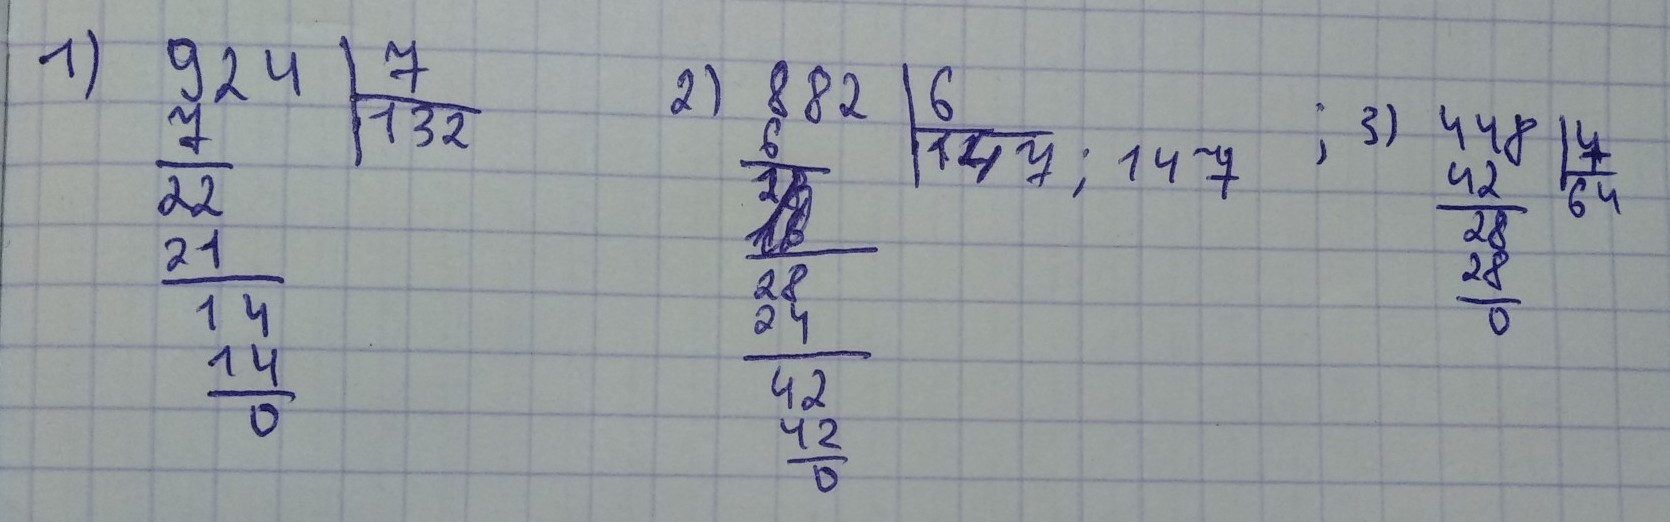 1) 924 | 7
7 | 132
22
21
14
14
0
2) 882 | 6
6 | 147 ; 147
28
24
42
42
0
; 3) 448 | 7
42 | 64
28
28
0